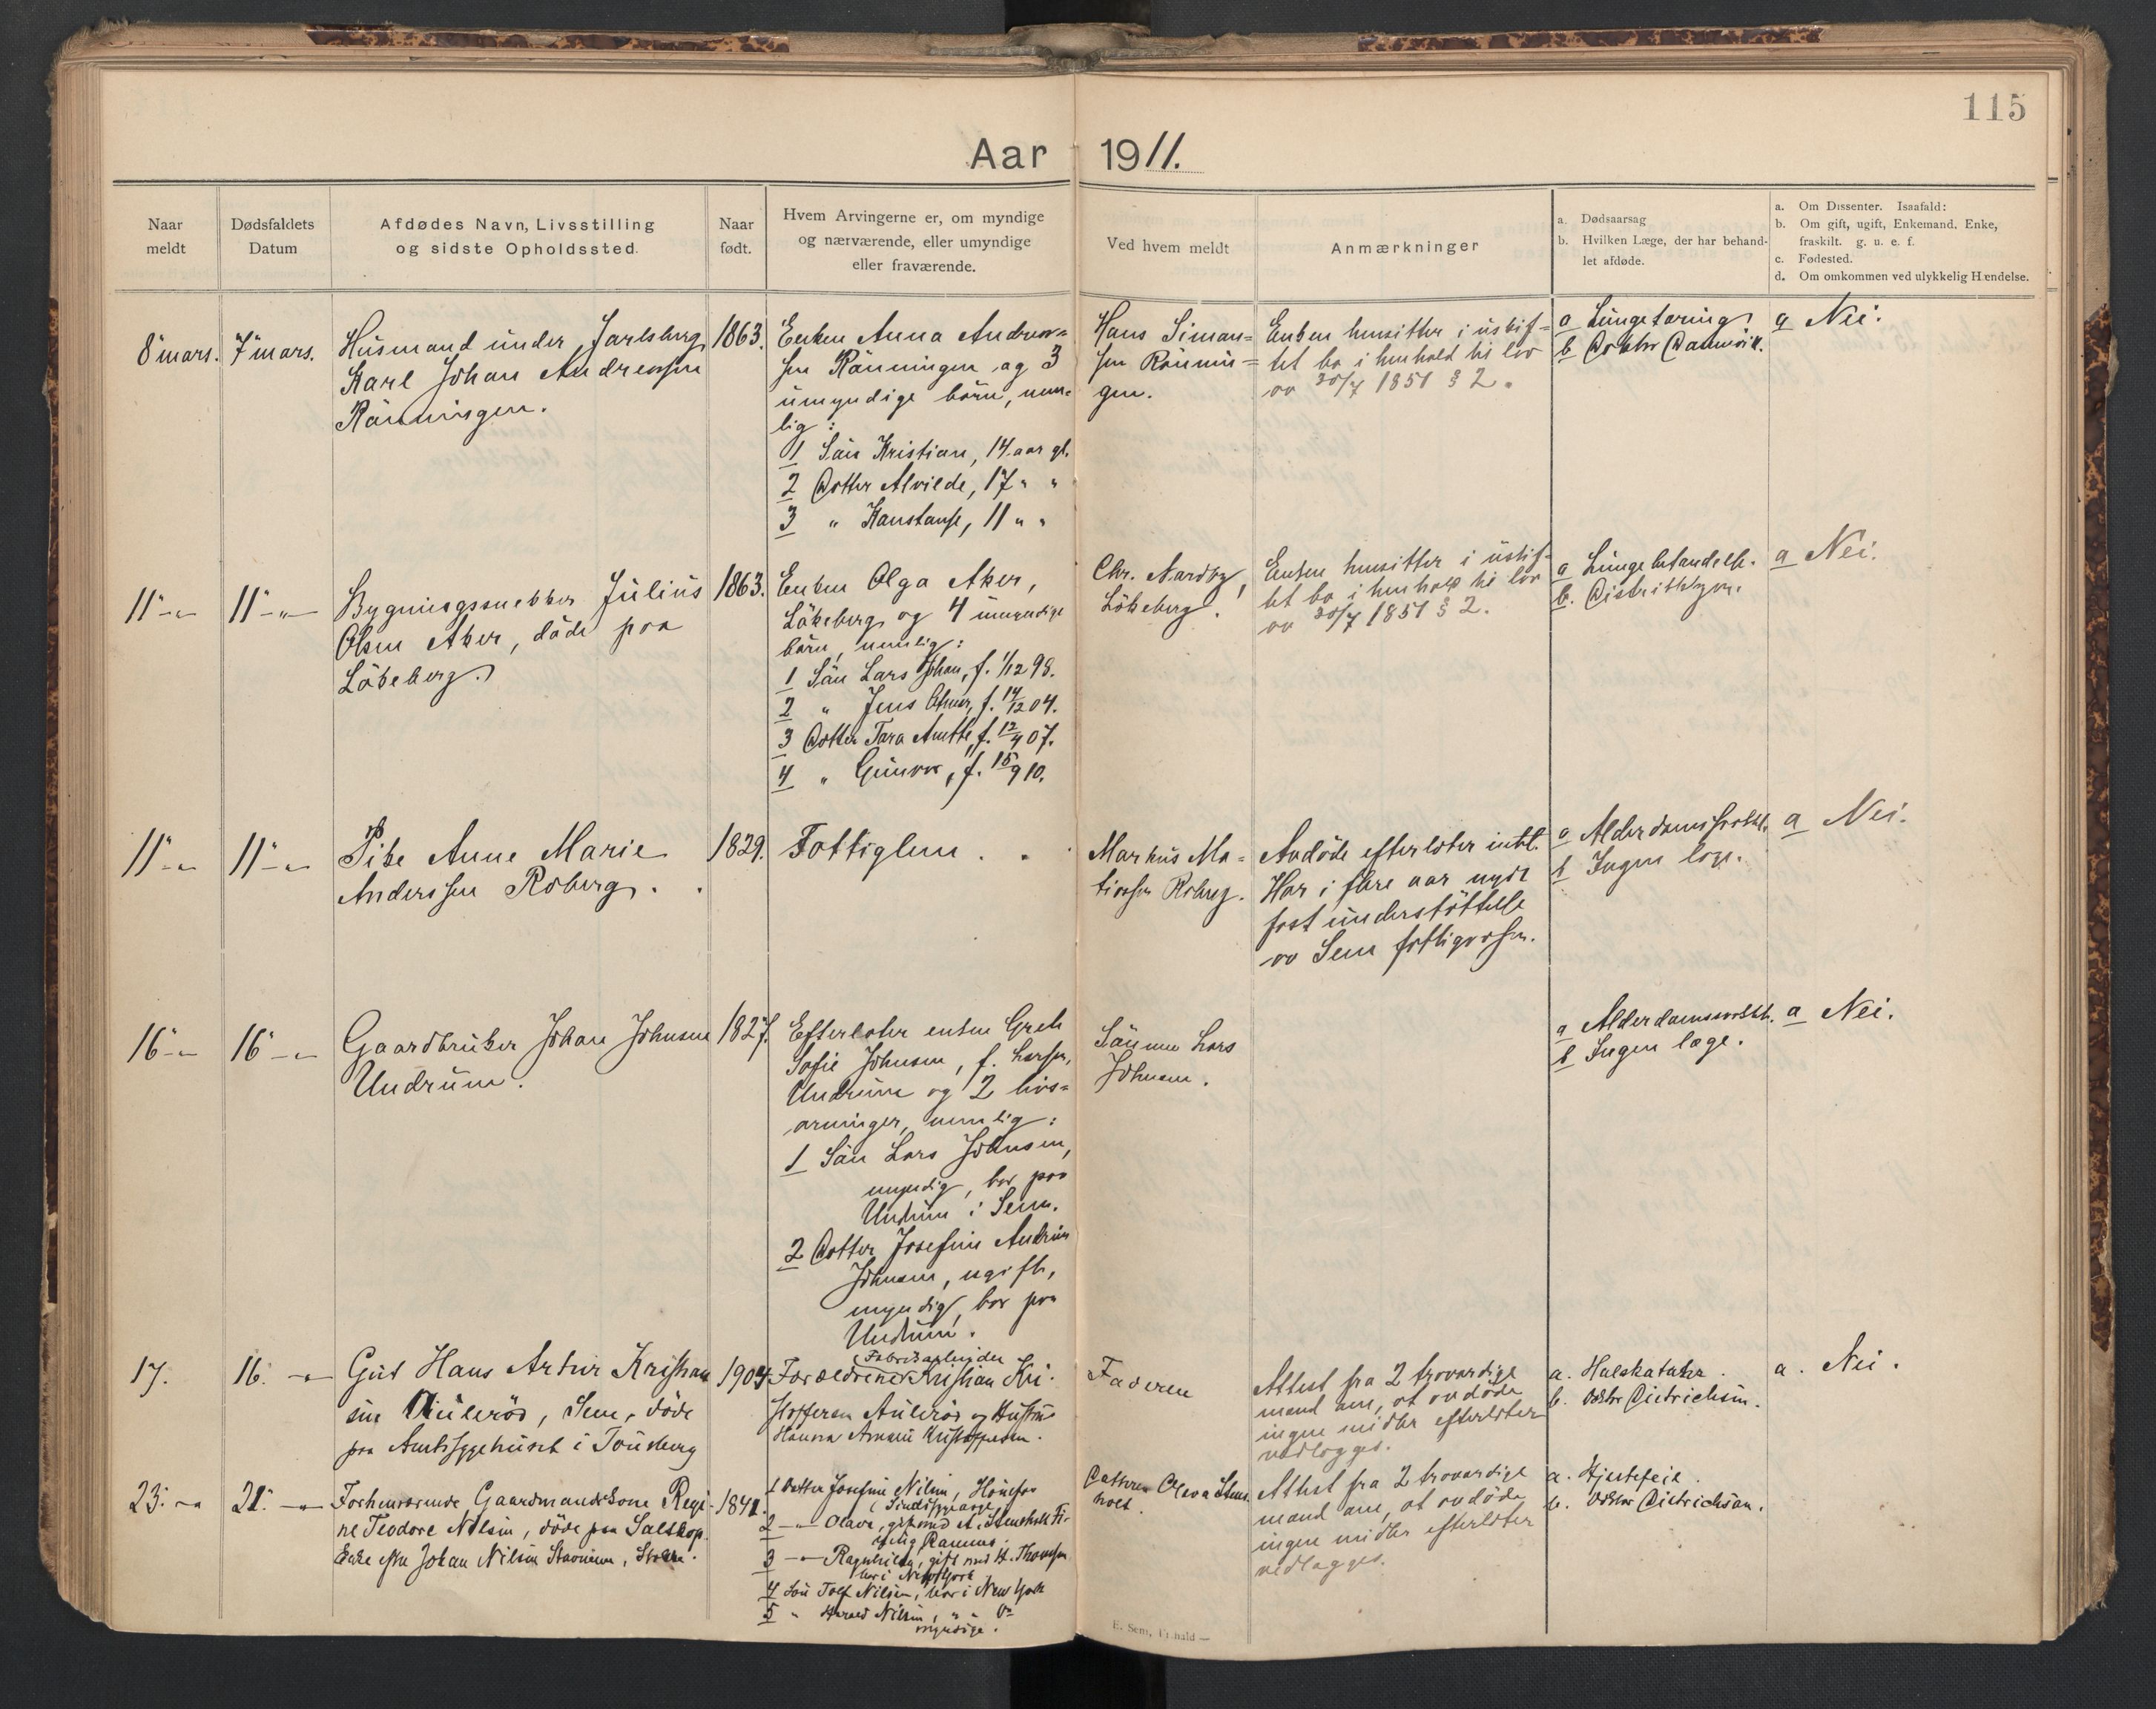 115
Aar 1911.
Naar
meldt
Dødsfaldets
Datum
Afdødes Navn, Livsstilling
og sidste Opholdssted.
Naar
født.
Hvem Arvingerne er, om myndige
og nærværende, eller umyndige
eller fraværende.
Ved hvem meldt
Anmærkninger
a. Dødsaarsag
b. Hvilken Læge, der har behand-
let afdøde.
a. Om Dissenter. Isaafald:
b. Om gift, ugift, Enkemand. Enke,
fraskilt. g. u. e. f.
c. Fødested.
d. Om omkommen ved ulykkelig Hændelse.
8 mars.
7 mars.
Husmand under Jarlsberg
Karl Johan Andreassen
Rønningen.
1863.
Enken Anna Andreas=
sen Rønningen og 3
umyndige børn, nem=
lig:
1 Søn Kristian, 14 aar gl.
2 Dotter Alvilde, 17 " "
3 " Konstanse, 11 " "
Hans Siman=
sen Rønnin=
gen.
Enken hensitter i uskif=
tet bo i henhold til lov
av 30/7 1851 § 2.
a Lungetæring
b Doktor
a Nei.
11 - " -
11 - " -
Bygningssnekker Julius
Olsen Aker, døde paa
Løkeberg.
1863.
Enken Olga Aker,
Løkeberg og 4 umyndige
børn, nemlig:
1 Søn Lars Johan, f. 1/12 98.
2 " Jens , f. 14/12 04.
3 Dotter Tora Anette, f. 12/4 07.
4 " Gunvor, f. 15/9 10.
Chr. Nardby,
Løkeberg.
Enken hensitter i uskif=
tet bo i henhold til lov
av 30/7 1851 § 2.
a Lungebetændelse.
b. Distriktslægen.
a Nei.
11 - " -
11 - " -
Pike Anne Marie
Anderssen Roberg.
1829.
Fattiglem.
Markus Ma=
tiassen Roberg.
Avdøde efterlater intet.
Har i flere aar nydt
fast understøttelse
av Sem fattigvæsen.
a Alderdomssvakhet.
b Ingen læge.
a Nei.
16 - " -
16 - " -
Gaardbruker Johan Johnsen
Undrum.
1827.
Efterlater enken Grete
Sofie Johnsen, f. Larsen,
Undrum og 2 livs=
arvinger, nemlig:
1 Søn Lars Johnsen,
myndig, bor paa
Undrum i Sem.
2 Dotter Josefine Andrine
Johnsen, ugift,
myndig, bor paa
Undrum.
Sønnen Lars
Johnsen.
a Alderdomssvakh.
b Ingen læge.
a Nei.
17.
16. - " -
Gut Hans Artur Kristian
sen Aulerød, Sem, døde
paa Amtssygehuset i Tønsberg
1904
Fabrikarbeider
Forældrene Kristian Kri-
stoffersen Aulerød og Hustru
Hanna Amalie Kristoffersen.
Faderen
Attest fra 2 troværdige
mænd om, at avdøde
ingen midler efterlater
vedlægges.
a. Halskatarr.
b. Doktor Dietrichson.
a. Nei.
23. - " -
21. - " -
Forhenværende Gaardmandskone Regi-
ne Teodore Nilsen, døde paa Saltkop.
Enke efter Johan Nilsen Stavnum, Stokke.
1841.
1 Datter Josefine Nilsen, Hønefos
(Sindssygeasyl)
2 - " - Olava, gift med A. Stensholt Fi-
Ramnes.
3 - " - Ragnhilda, gift med H. Thomsen
bor i New York
4 Søn Tolf Nilsen, bor i New York
5 " Harald Nilsen, " " Do
myndige.
Datteren Olava Stens-
holt.
Attest fra 2 troværdige
mænd om, at avdøde
ingen midler efterlater
vedlægges.
a. Hjertefeil.
b. Doktor Dietrichson.
E. Sem, Fr.hald —